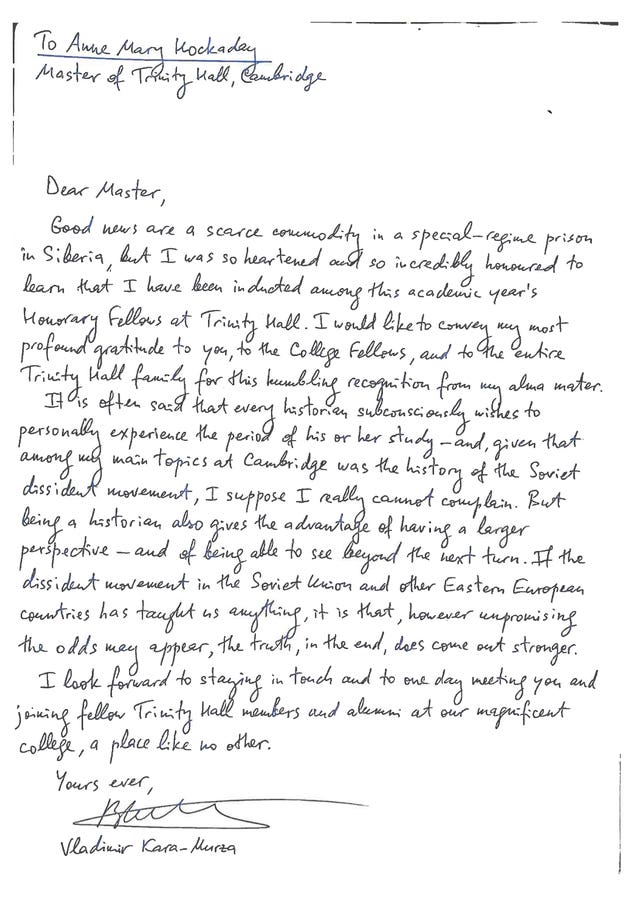 To Anne Mary Hockaday
Master of Trinity Hall, Cambridge
Dear Master,
Good news are a scarce commodity in a special-regime prison
in Siberia, but I was so heartened and so incredibly honoured to
learn that I have been inducted among this academic year's
Honorary Fellows at Trinity Hall. I would like to convey my most
profound gratitude to you, to the College Fellows, and to the entire
Trinity Hall family for this humbling recognition from my alma mater.
It is often said that every historian subconsciously wishes to
personally experience the period of his or her study – and, given that
among my main topics at Cambridge was the history of the Soviet
dissident movement, I suppose I really cannot complain. But
being a historian also gives the advantage of having a larger
perspective – and of being able to see beyond the next turn. If the
dissident movement in the Soviet Union and other Eastern European
countries has taught us anything, it is that, however unpromising
the odds may appear, the truth, in the end, does come out stronger.
I look forward to staying in touch and to one day meeting you and
joining fellow Trinity Hall members and alumni at our magnificent
college, a place like no other.
Yours ever,
Vladimir Kara-Murza